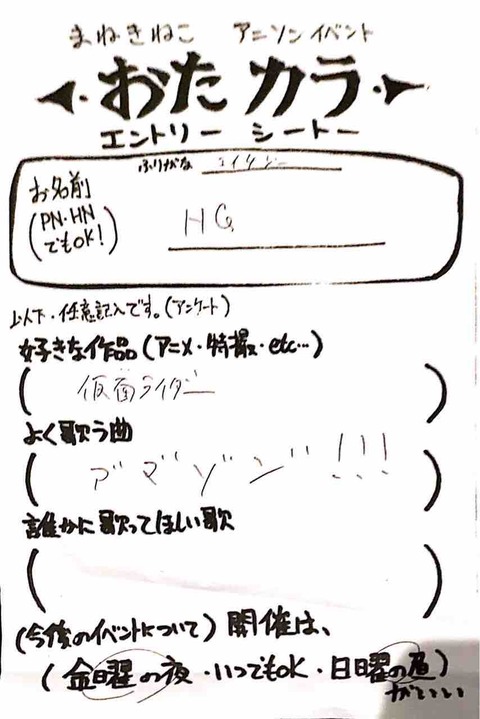 まねきねこ アニソンイベント
おたカラ
エントリー シート
ふりがな エイチジー
お名前
(PN・HN
でもOK!)
HG
以下・任意記入です。(アンケート)
好きな作品(アニメ・特撮・etc…)
(仮面ライダー)
よく歌う曲
(ア゛マ゛ゾ゛ン゛!!!)
誰かに歌ってほしい歌
( )
(今後のイベントについて)開催は、
(金曜の夜・いつでもOK・日曜の昼)
がいい